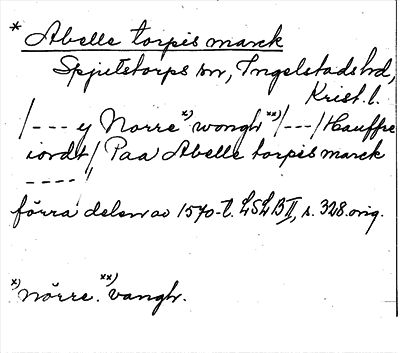 * Abelle torpis marck
Spjutstorps sn, Ingelstads hd,
Krist. l.
/--- ÿ Norre x) wongh xx) /---/ Hauffre
iordt/ Paa Abelle torpis marck
---- /
förra delen av 1570-t. LSLB II, s. 328. orig.
x) nörre. xx) vangh.